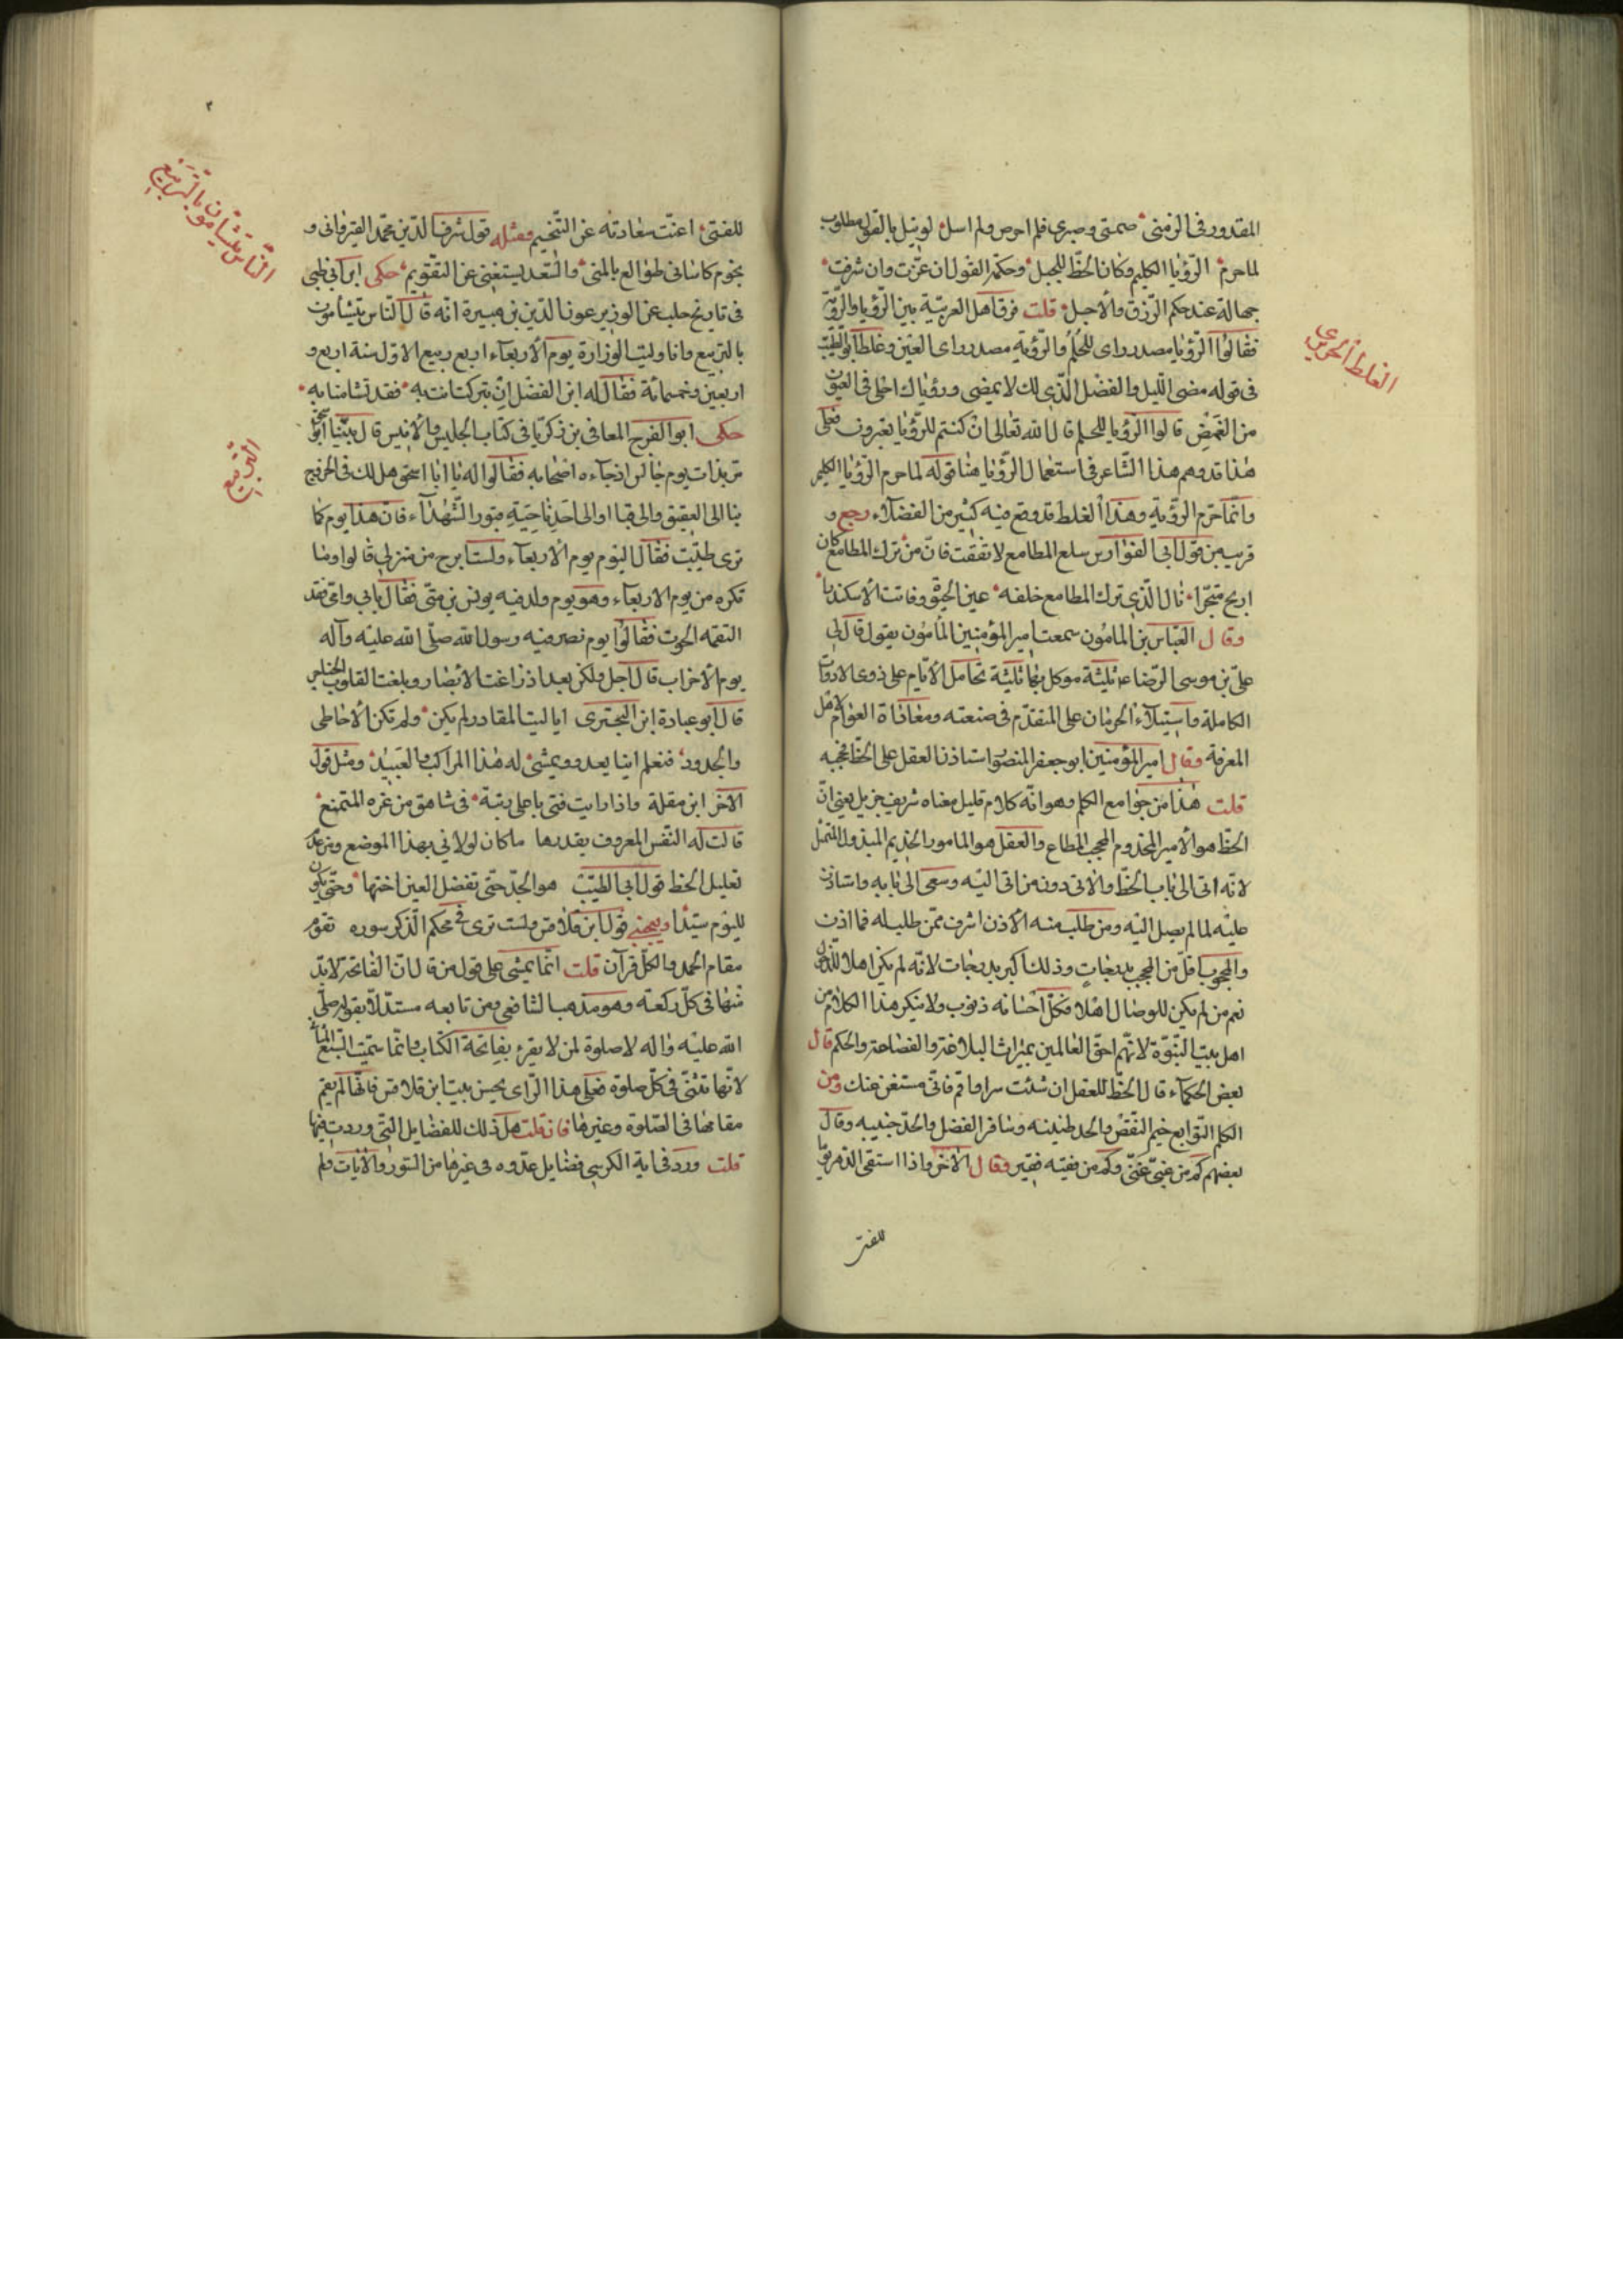 المقدور فى الزمنى صمتى وصبرى فلم احرص ولم اسل لو نيل بالقول مطلوب
لما حرم الرؤيا الكليم وكان الحظ للجبل وحكمة القول ان عزت وان شرفت
جهالة عند حكم الرزق والاجل قلت فرق اهل العربية بين الرؤيا والرؤية
فقالوا الرؤيا مصدر راى للحلم والرؤية مصدر راى العين وغلطا ابو الطيب
فى قوله مضى الليل والفضل الذى لك لا يمضى ورؤياك احلى فى العيون
من الغمض قالوا الرؤيا للحلم قال الله تعالى ان كنتم للرؤيا تعبرون فعلى
هذا قد وهم هذا الشاعر فى استعمال الرؤيا هنا قوله لما حرم الرؤيا الكليم
وانما حرم الرؤية وهذا الغلط قد وقع فيه كثير من الفضلاء رجع و
قريب من قول ابى الفوارس سلع المطامع لا تفقت فان من ترك المطامع كان
اربح متجرا نال الذى ترك المطامع خلفه عين الحيوة وفاتت الاسكندرا
وقال العباس بن المامون سمعت امير المؤمنين المامون يقول قال لى
على بن موسى الرضا ع ثلثة موكل بها ثلثة تحامل الايام على ذوى الادوات
الكاملة واستيلاء الحرمان على المتقدم فى صنعته ومعاداة العوام لاهل
المعرفة وقال امير المؤمنين ابو جعفر المنصور استاذن العقل على الحظ فحجبه
قلت هذا من جوامع الكلم وهو انه كلام قليل معناه شريف جزيل يعنى ان
الحظ هو الامير المخدوم المحجب المطاع والعقل هو المامور الخديم المبذول المتمثل
لانه اتى الى باب الحظ والاتى دونه من اتى اليه وسعى الى بابه واستاذن
عليه لما لم يصل اليه ومن طلب منه الاذن اشرف ممن طلب له فما اذن
والمحجوب اقل من المحجب بدرجات وذلك اكبر بدرجات لانه لم يكن اهلا للدخول
نعم من لم يكن للوصال اهلا فكل احسانه ذنوب ولا ينكر هذا الكلام من
اهل بيت النبوة لانهم احق العالمين بميراث البلاغة والفصاحة والحكم قال
بعض الحكماء قال الحظ للعقل ان شئت سر او اقم فانى مستغن عنك ومن
الكلم النوابع خيم النقص والجد طنينه وسافر الفضل والجد جنيبه وقال
بعضهم كم من غبى غنى وكم من فقيه فقير وقال الاخر واذا استقى الدهر
للفتى
الغلط الحريرى
للفتى اغنت سعادته عن التنجيم ومثله قول شرف الدين محمد القيروانى و
نجوم كاسانى طوالع بالمنى والسعد يستغنى عن التقويم حكى ابن ابى طى
فى تاريخ حلب عن الوزير عون الدين بن هبيرة انه قال الناس يتشأمون
بالتربيع وانا وليت الوزارة يوم الاربعاء اربع ربيع الاول سنة اربع و
اربعين وخمسمائة فقال له ابن الفضل ان تبركت انت به فقد تشامنا به
حكى ابو الفرج المعافى بن زكريا فى كتاب الجليس والانيس قال بينا ابو اسحق
مزيد ذات يوم جالس اذ جاءه اصحابه فقالوا له يا ابا اسحق هل لك فى الخروج
بنا الى العقيق والى قبا او الى احد ناحية قبور الشهداء فان هذا يوم كما
ترى طيب فقال اليوم يوم الاربعاء ولست ابرح من منزلى قالوا وما
تكره من يوم الاربعاء وهو يوم ولد فيه يونس بن متى فقال بابى وامى فقد
التقمه الحوت فقالوا يوم نصر فيه رسول الله صلى الله عليه وآله
يوم الاحزاب قال اجل ولكن بعد اذ زاغت الابصار وبلغت القلوب الحناجر
قال ابو عبادة ابن البحترى ايا ليت المقادر لم يكن ولم تكن الاحاظى
والجدود فنعلم اينا يعدو ويمشى له هذا المراكب والعبيد ومثل قول
الآخر ابن مقلة واذا رايت فتى باعلى رتبة فى شامق من عزه المتمنع
قالت له النفس المعروف بقدرها ما كان اولانى بهذا الموضع ومن عدم
تعليل الحظ قول ابى الطيب هو الجد حتى تفضل العين اختها وحتى يكون
لليوم سيدا ويعجبنى قول ابن قلاقس ولست ترى فى محكم الذكر سوره تقوم
مقام الحمد والكل قرآن قلت انما يمشى على قول من قال ان الفاتحة لابد
منها فى كل ركعة وهو مذهب الشافعى ومن تابعه مستدلا بقوله صلى
الله عليه واله لا صلوة لمن لا يقرء بفاتحة الكتاب وانما سميت السبع المثانى
لانها تثنى فى كل صلوة فعلى هذا الراى يحسن بيت ابن قلاقس فانها لم يقم
مقامها فى الصلوة وغيرها فان قلت هل ذلك للفضايل التى وردت فيها
قلت ورد فى اية الكرسى فضايل عدوه فى غيرها من السور والايات ولم
الناس يتشأمون بالتربيع
التربيع